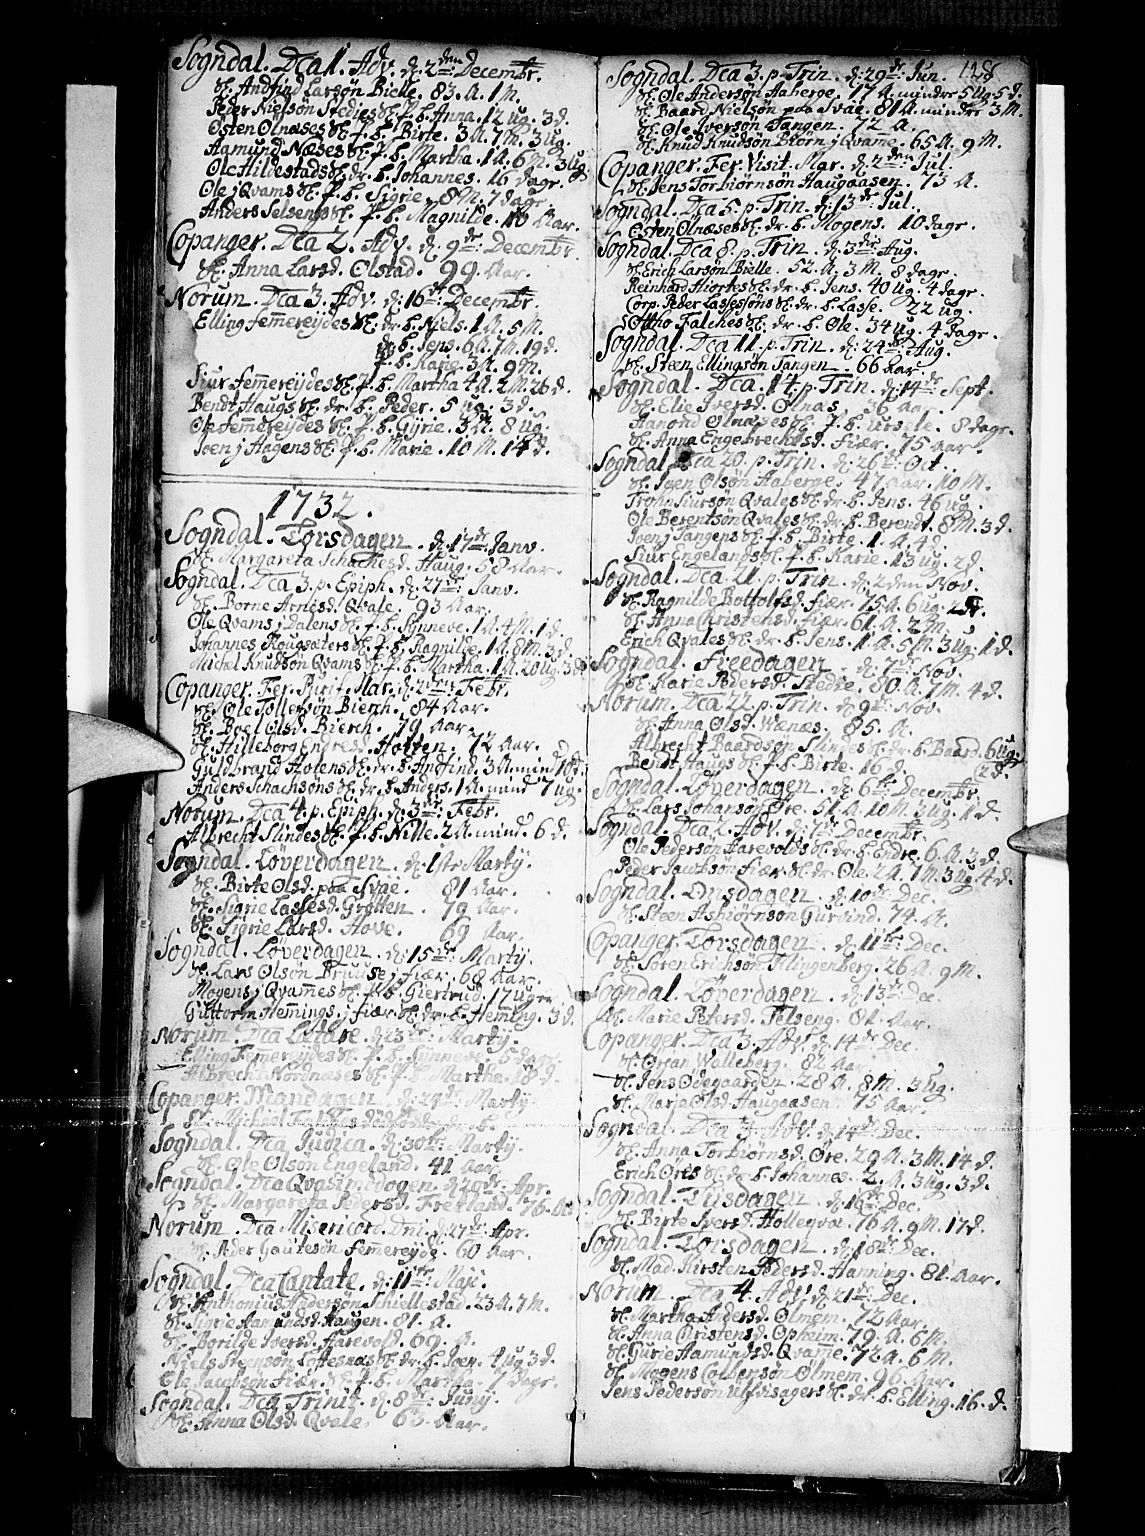 Sogndal. Dca 1. Adv. d: 2den: Decembr.
Sl. Andfind Larsøn Bielle. 83. A. 1 M.
Peder Nielsøn Stedies Sl. P. b. Anna. 12 ug. 3 d.
Østen Ølnæses Sl. P. b. Birte. 3 A. 7 M. 3 ug.
Aamund Næses Sl. P. b. Martha. 1 A. 6 M. 3 ug.
Ole Hildestads Sl. dr. b. Johannes. 16 dage.
Ole j Qvams Sl. P. b. Sigrie. 8 M. 7 dage.
Anders Selsengs Sl. P. b. Magnilde. 10 Aar.
Copanger. Dca 2. Adv. d: 9de: Decembr.
Sl. Anna Larsd. Olstad. 99 Aar.
Norum. Dca 3. Adv. d: 16de: Decembr.
Elling femmereydes Sl. dr. b. Niels. 1 A. 5 M.
dr. b. Jens. 6 A. 7 M. 19 d.
P. b. Karie. 3 A. 9 M.
Siur femmereydes Sl. P. b. Martha 4 A. 2 M. 26 d.
Bendt Haugs Sl. dr. b. Peder. 5 ug. 3 d.
Ole femmereydes Sl. P. b. Gyrie. 3 A. 8 ug.
Joen j Hagens Sl. P. b. Marie. 10 M. 14 d.
1732.
Sogndal. Torsdagen. d: 17de: Janv.
Sl. Margareta Schachesd. Haug. 58 Aar.
Sogndal. Dca 3. p. Epiph. d: 27de: Janv.
Sl. Borne Arnesd. Qvale. 93 Aar.
Ole Qvams j dalens Sl. P. b. Synneve. 1 A. 4 M. 1 d.
Johannes Rougsæters Sl. P. b. Ragnilde. 1 A. 8 M. 3 d.
Michel Knudsøn Qvams Sl. P. b. Martha. 1 A. 20 ug. 3 d.
Copanger. Fer. Purif. Mar. d: 2den: Febr.
Sl. Ole Tollefsøn Bierch. 84 Aar.
Sl. Boel Olsd. Bierch. 79 Aar.
Sl. Hilleborg Endresd. Hotten. 72 Aar.
Guldbrand Holens Sl. dr. b. Andfind. 3 A. mind. 16 d.
Anders Schachsøns Sl. dr. b. Anders. 1 A. mind 7 ug.
Norum. Dca 4. p. Epiph. d: 3die: Febr.
Albrecht Slindes Sl. P. b. Nille. 2 A. mind. 6 d.
Sogndal. Løverdagen. d: 1ste Martij.
Sl. Birte Olsd. paa Svae. 81 Aar.
Sl. Sigrie Lassesd. Grotten. 79 Aar.
Sl. Sigrie Larsd. Hove. 69 Aar.
Sogndal. Løverdagen. d: 15de: Martij.
Sl. Lars Olsøn Brulise j fiær. 68 Aar.
Mogens j Qvames Sl. P. b. Giertrud. 17 uger.
Guttorm Hemmings j fiær. Sl. dr. b. Heming. 3 d.
Norum. Dca Lætare. d: 23de: Martij.
Elling Femereydes Sl. P. b. Synneve. 5 dage.
Albrecht Nordnæses Sl. P. b. Martha. 18 d.
Copanger. Mandagen. d: 24de: Martij.
Sogndal. Dca Judica. d: 30te: Martij.
Sl. Ole Olsøn Engeland. 41 Aar.
Sogndal. Dca Qvasimodogen. d: 20de: Apr.
Sl. Margareta Pedersd. Frekland. 76. Aar
Norum. Dca Misericord. Dni. d: 27de: Apr.
Sl. Peder Gautesøn femereyde. 60 Aar.
Sogndal. Dca Cantate. d: 11te: Maji.
Sl. Anthonius Andersøn Schiellestad. 23 A. 7 M.
Sl. Sigrie Aamundsd. Haugen. 81. A.
Sl. Borilde Iversd. Farevold. 69. A.
Niels Steensøn Loftesnæs Sl. dr. b. Joen. 4 ug. 3 d.
Ole Jacobsøn Fiær. Sl. P. b. Martha. 7 dage.
Sogndal. Dca Trinit. d: 8de: Junij.
Sl. Anna Olsd. Qvale. 63 Aar.
Sogndal. Dca 3. p. Trin. d: 29de: Jun.
Sl. Ole Andersøn Aaberge. 77 A. mindre 5 ug. 5 d.
Sl. Baard Nielsøn paa Svae. 81 A. mindre 3 M.
Sl. Ole Iversøn Tangen. 72 A.
Sl. Knud Knudsøn Biørn j Qvame. 65 A. 9 M.
Copanger. Fer. Visit. Mar. d: 2den: Jul.
Sl. Jens Torbiørnsøn Haugaasen. 73 A.
Sogndal. Dca 5. p. Trin. d: 13de: Jul.
Østen Ølnæses Sl. dr. b. Mogens. 10 dage.
Sogndal. Dca 8. p. Trin. d: 3die: Aug.
Sl. Erich Larsøn Bielle. 52. A. 3 M. 8 dage.
Reinhard Hiortes Sl. dr. b. Jens. 40 ug. 4 dage.
Corp. Peder Lassessøns Sl. dr. b. Lasse. 22 ug.
Ottho Falches Sl. dr. b. Ole. 34 ug. 4 dage.
Sogndal. Dca 11. p. Trin. d: 24de: Aug.
Sl. Steen Ellingsøn Tangen. 66 Aar.
Sogndal. Dca. 14. p. Trin. d: 14de: Sept.
Sl. Elie Iversd. Ølnæs. 36 Aar.
Haaond Ølnæses Sl. P. b. Ursele. 8 dage.
Sl. Anna Engebrechtsd. Fiær. 75 Aar.
Sogndal. Dca 20. p. Trin. d: 26de: Oct.
Sl. Joen Olsøn Aaberge. 47 Aar. 10 M.
Trohn Siursøn Qvales Sl. dr. b. Jens. 46 ug.
Ole Berentsøn Qvales Sl. dr. b. Berendt. 8 M. 3 d.
Joen j Tangens Sl. P. b. Birte. 1. A. 4 d.
Siur Engelands Sl. P. b. Karie. 13 ug. 2 d.
Sogndal. Dca 21. p. Trin. d: 2den Nov.
Sl. Ragnilde Bottolfsd. fiær. 75 A. 6 ug.
Sl. Anna Christensd. fiær. 61. A. 2 M.
Erich Qvales Sl. dr. b. Jens. 1. A. 5 M. 3 ug. 1 d.
Sogndal. Freedagen. d: 7de: Nov.
Sl. Karie Pedersd. Stedie. 80. A. 7 M. 4 d.
Norum. Dca 22. p. Trin. d: 9de: Nov.
Sl. Anna Olsd. Wænæs. 85. A.
Albrecht Baardsøn Slindes Sl. dr. b. Baard. 6 ug. 2 d.
Bendt Haugs Sl. P. b. Birte. 16 d.
Sogndal. Løverdagen. d: 6te: Decembr.
Sl. Lars Johansøn Øre. 51 A. 10 M. 3 ug. 1 d.
Sogndal. Dca 2. Adv. d: 7de: Decembr.
Ole Pedersøn Farevolds Sl. dr. b. Endre. 6. A. 3 d.
Peder Jacobsøn Fiær. Sl. dr. Ole. 2 A. 1 M. 3 ug. 4 d.
Sogndal. Onsdagen. d: 10de Dec.
Sl. Steen Asbiørnsøn Gurvind. 74. A.
Copanger. Torsdagen. d: 11te: Dec.
Sl. Søren Erichsøn Klingenberg. 26 A. 9 M.
Sogndal. Løverdagen. d: 13de: Dec.
Sl. Marie Petersd. Felseng. 81. Aar.
Copanger. Dca 3. Adv. d: 14de: Dec.
Sl. Ørjan Walleberg. 82 Aar.
Sl. Jens Ødegaarden. 28 A. 8 M. 3 ug.
Sl. Marja Olsd. Haugaasen. 75 Aar.
Sogndal. Dca 3. Adv. d: 14de: Dec.
Sl. Anna Torbiørnsd. Øre. 29 A. 3 M. 14 d.
Erich Øres Sl. dr. b. Johannes. 2. A. 3 ug. 3 d.
Sogndal. Tiisdagen. d: 16de: Dec.
Sl. Birte Iversd. Hollegvæ. 76 A. 9 M. 17 d.
Sogndal. Torsdagen. d: 18de: Dec.
Sl. Mad. Kirsten Pedersd. Hanning. 81. Aar.
Norum. Dca 4. Adv. d: 21de: Dec.
Sl. Martha Andersd. Ølmem. 72 Aar.
Sl. Anna Christensd. Opheim. 79. A. 6 M.
Sl. Gurie Aamundsd. Qvamme. 72 A. 6 M.
Sl. Mogens Colbensøn Ølmem. 96 Aar.
Jens Pedersøn Ulfvisagers Sl. dr. b. Elling. 16. d.